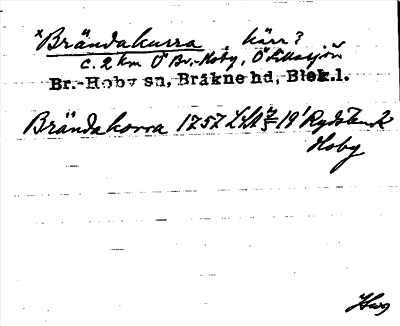 *Brändakurra, kärr?
c. 2 km Ö Br.-Hoby, Ö Lillasjön
Br.-Hoby sn, Bräkne hd, Blek.l.
Brändakorra 1757 LHA 19 Rydsbeck
Hoby